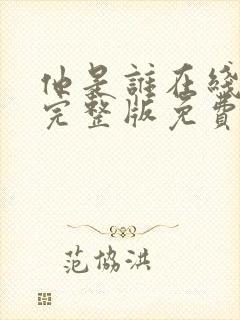 他是誰在綫
完整版免費
范協洪